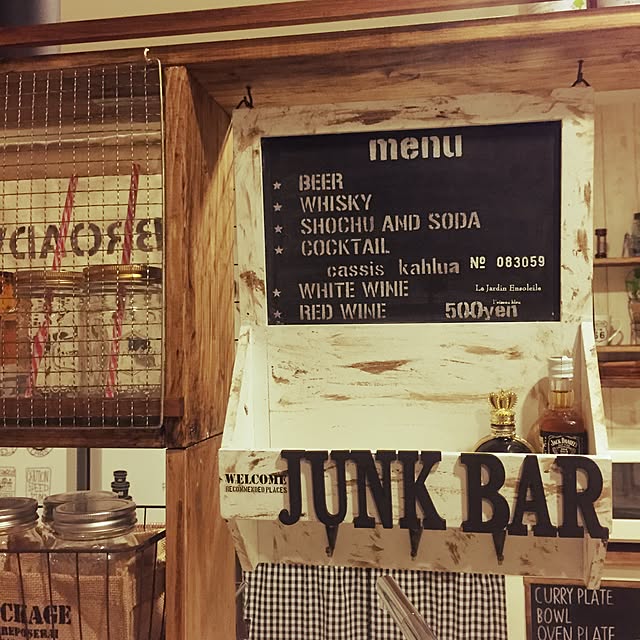 menu
BEER
WHISKY
SHOCHU AND SODA
COCKTAIL
cassis kahlua
Nº 083059
WHITE WINE
Le Jardin Ensoleile
l'oiseau bleu
RED WINE
500yen
BROAD
JACK DANIEL'S
WELCOME
RECOMMENDED PLACES
JUNK BAR
CKAGE
REPOSERAI
CURRY PLATE
BOWL
OVEN PLATE